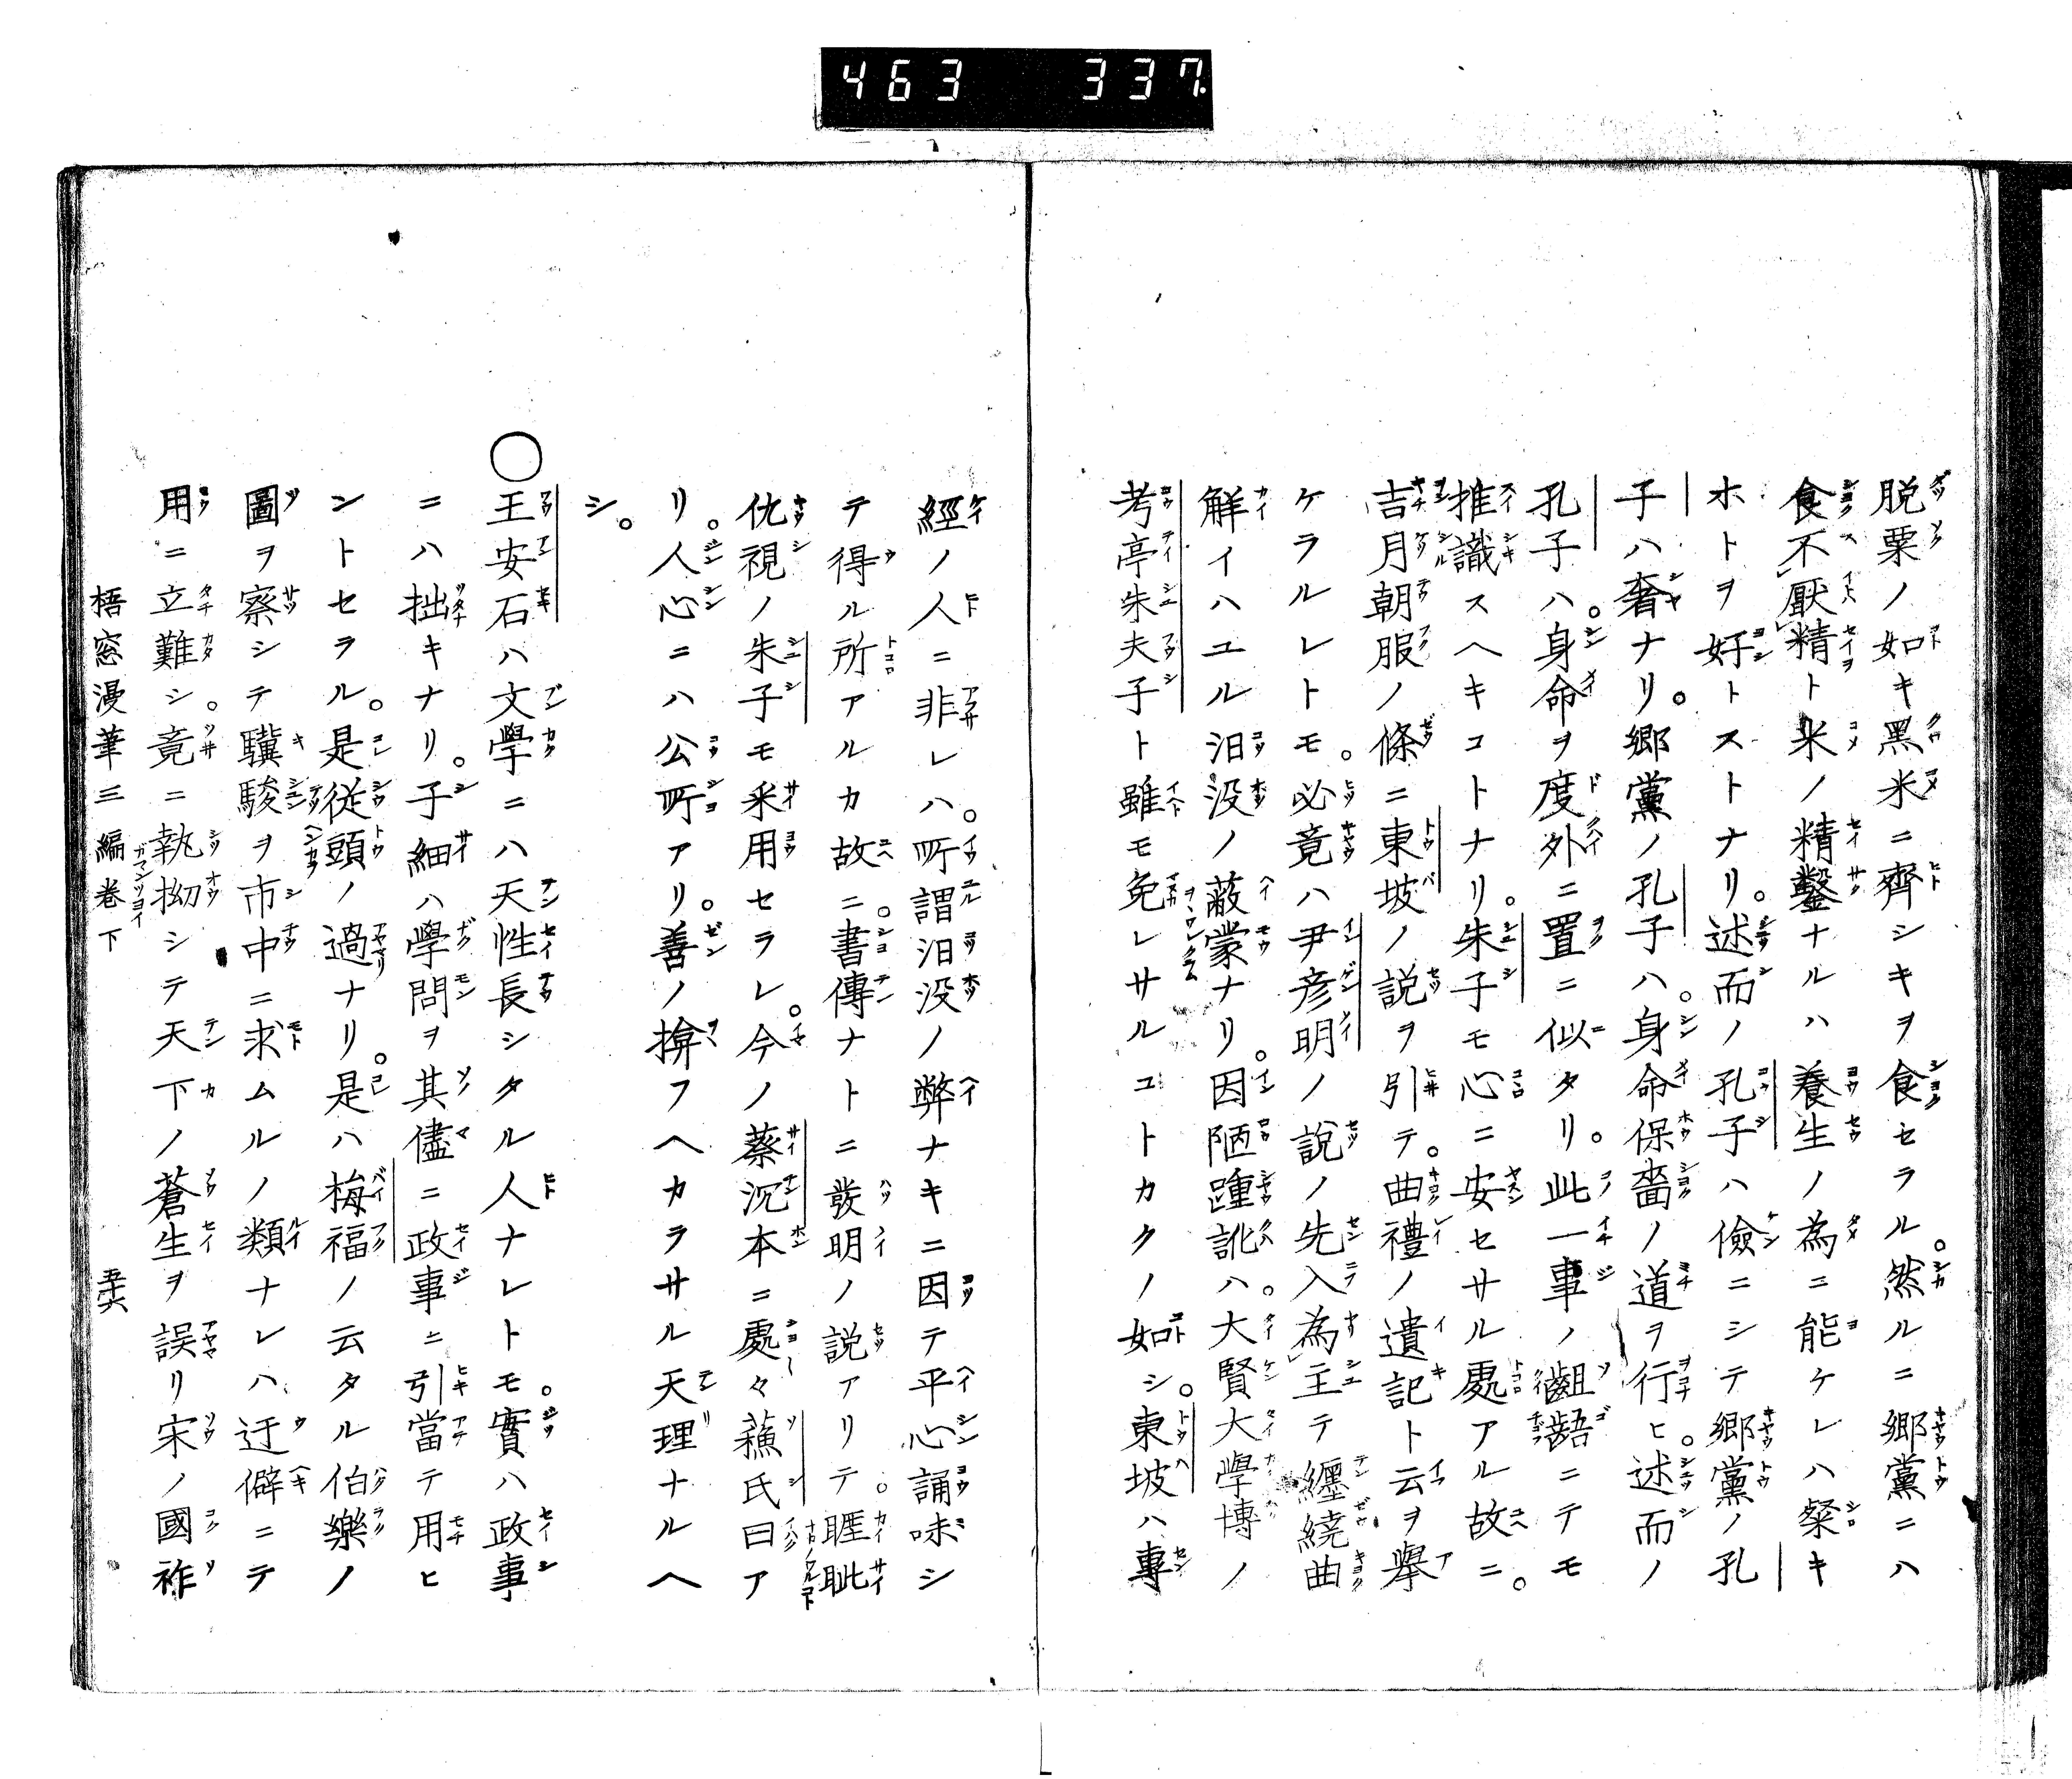 463 337
脱粟ノ如キ黑米ニ齊シキヲ食セラル。然ルニ郷黨ニハ
食不厭精ト米ノ精鑿ナルハ養生ノ為ニ能ケレハ粲キ
ホトヲ好トストナリ。述而ノ孔子ハ儉ニシテ郷黨ノ孔
子ハ奢ナリ。郷黨ノ孔子ハ。身命保嗇ノ道ヲ行ヒ。述而ノ
孔子ハ。身命ヲ度外ニ置ニ似タリ。此一事ノ齟齬ニテモ
推識スヘキコトナリ。朱子モ心ニ安セサル處アル故ニ。
吉月朝服ノ條ニ東坡ノ説ヲ引テ。曲禮ノ遺記ト云ヲ擧
ケラルレトモ。必竟ハ尹彦明ノ説ノ先入為主テ纒繞曲
解イハユル汨没ノ蔽蒙ナリ。因陋踵訛ハ。大賢大學博ノ
考亭朱夫子ト雖モ免レサルコトカクノ如シ。東坡ハ專
經ノ人ニ非レハ。所謂汨没ノ弊ナキニ因テ平心誦味シ
テ得ル所アルカ故ニ。書傳ナトニ發明ノ説アリテ。睚眦
仇視ノ朱子モ釆用セラレ。今ノ蔡沉本ニ處々蘓氏曰ア
リ。人心ニハ公所アリ。善ノ揜フヘカラサル天理ナルヘ
シ。
○王安石ハ文學ニハ天性長シタル人ナレトモ。實ハ政事
ニハ拙キナリ。子細ハ學問ヲ其儘ニ政事ニ引當テ用ヒ
ントセラル。是従頭ノ過ナリ。是ハ梅福ノ云タル伯樂ノ
圖ヲ察シテ驥駿ヲ市中ニ求ムルノ類ナレハ、迂僻ニテ
用ニ立難シ。竟ニ執拗シテ天下ノ蒼生ヲ誤リ宋ノ國祚
梧窓漫筆三編卷下 五十六